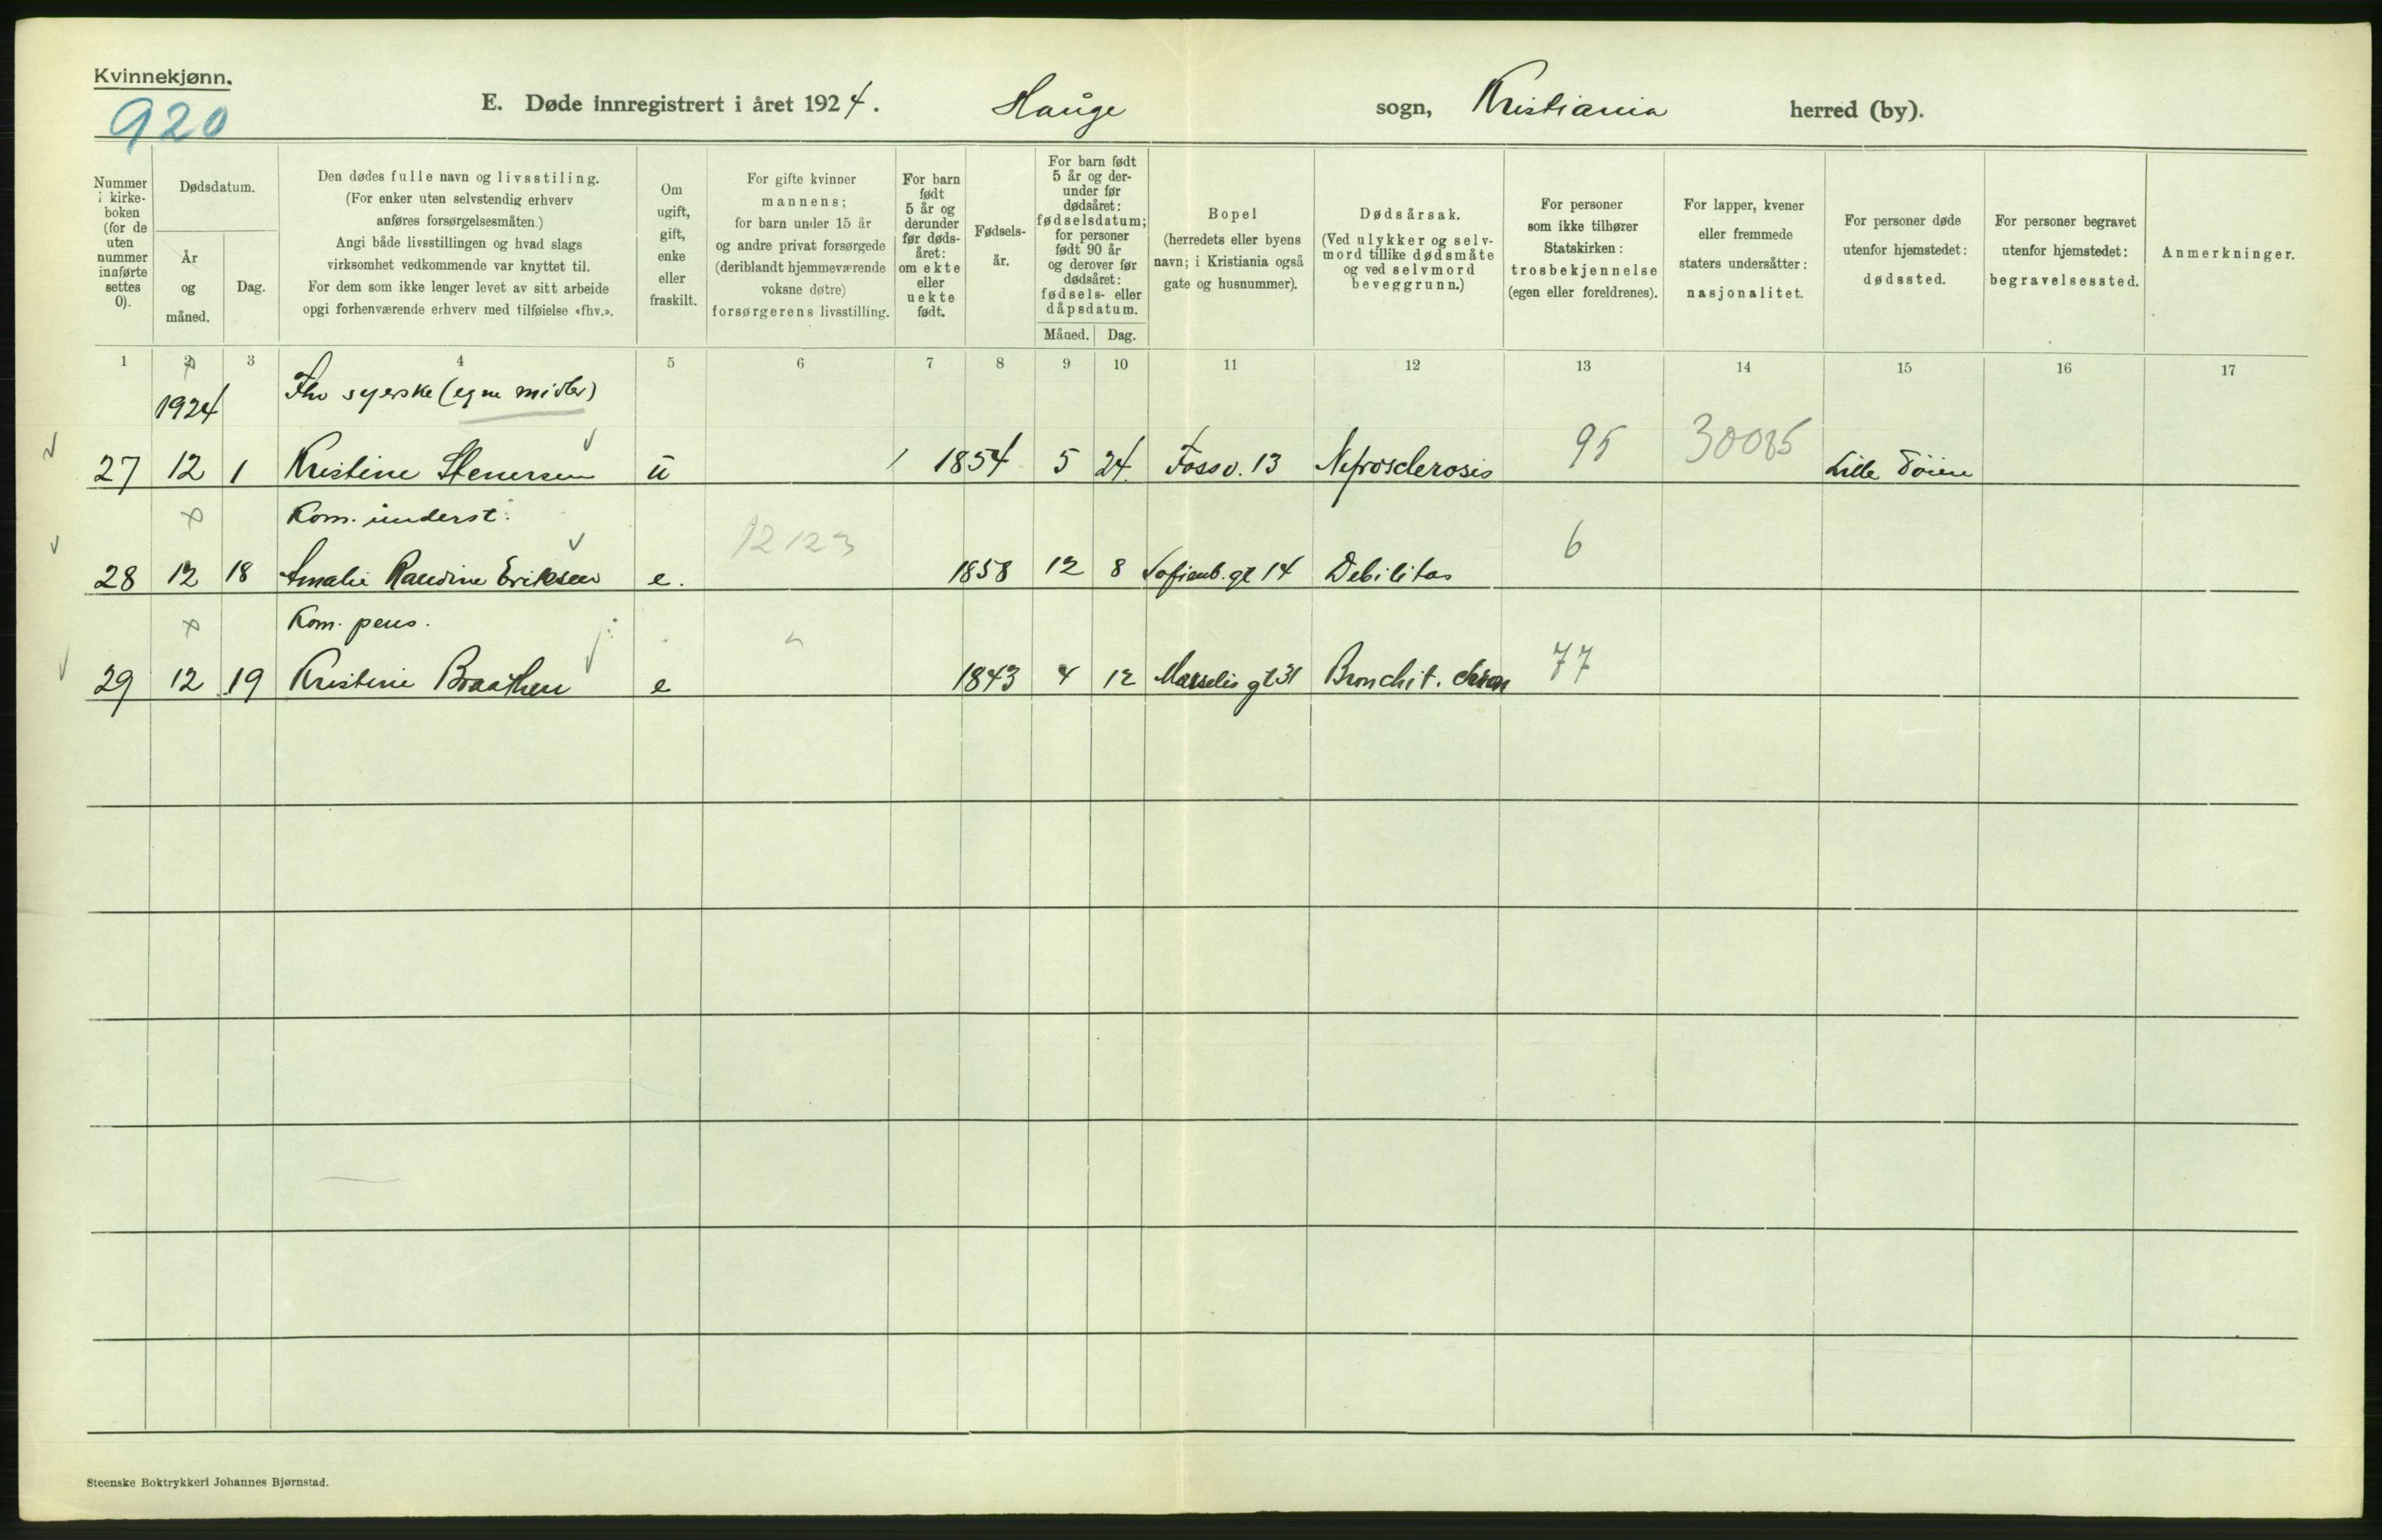 Kvinnekjønn.
920
E. Døde innregistrert i året 1924. Hauge sogn, Kristiania herred (by).
Nummer i kirke-boken (for de uten nummer innførte settes 0).
Dødsdatum.
År og måned.
Dag.
Den dødes fulle navn og livsstiling.
(For enker uten selvstendig erhverv
anføres forsørgelsesmåten.)
Angi både livsstillingen og hvad slags
virksomhet vedkommende var knyttet til.
For dem som ikke lenger levet av sitt arbeide
opgi forhenværende erhverv med tilføielse «fhv.».
Om
ugift,
gift,
enke
eller
fraskilt.
For gifte kvinner
mannens;
for barn under 15 år
og andre privat forsørgede
(deriblandt hjemmeværende
voksne døtre)
forsørgerens livsstilling.
For barn
født
5 år og
derunder
før døds-
året:
om ekte
eller
uekte
født.
Fødsels-
år.
For barn født
5 år og der-
under før
dødsåret:
fødselsdatum;
for personer
født 90 år
og derover før
dødsåret:
fødsels- eller
dåpsdatum.
Måned. Dag.
Bopel
(herredets eller byens
navn; i Kristiania også
gate og husnummer).
Dødsårsak.
(Ved ulykker og selv-
mord tillike dødsmåte
og ved selvmord
beveggrunn.)
For personer
som ikke tilhører
Statskirken:
trosbekjennelse
(egen eller foreldrenes).
For lapper, kvener
eller fremmede
staters undersåtter:
nasjonalitet.
For personer døde
utenfor hjemstedet:
dødssted.
For personer begravet
utenfor hjemstedet:
begravelsessted.
Anmerkninger.
1 2 3 4 5 6 7 8 9 10 11 12 13 14 15 16 17
1924 Fhv syerske (egne midler)
27 12 1 Kristine Stenersen u 1854 5 24. Fossv. 13 Nefrosclerosis 95 30085 Lille Tøien
Kom. underst:
28 12 18 Amalie Randine Eriksen e. 12123 1858 12 8 Sofienb. gt 14 Debilitas 6
Kom. pens.
29 12 19 Kristine Braathen e 1843 4 12 Marselis gt 31 Bronchit. chron 77
Steenske Boktrykkeri Johannes Bjørnstad.